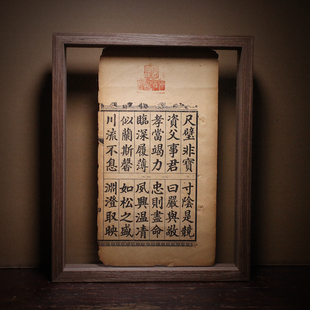 尺璧非寶寸陰是競
資父事君曰嚴與敬
孝當竭力忠則盡命
臨深履薄夙興溫凊
似蘭斯馨如松之盛
川流不息淵澄取映